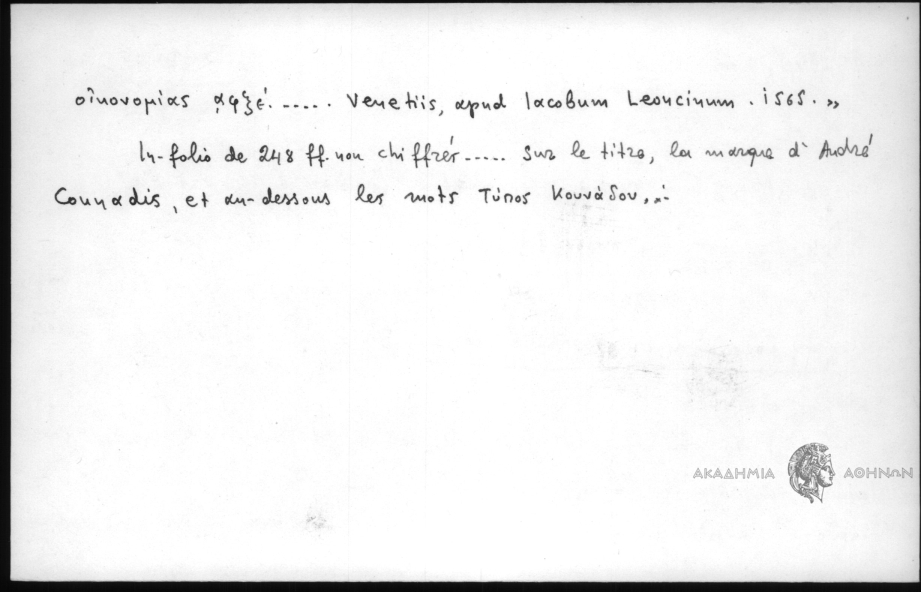 οἰκονομίας ͵αφξέ. ..... Venetiis, apud Iacobum Leoncinum. i565. »
In-folio de 248 ff. non chiffrés ..... Sur le titre, la marque d'André
Counadis, et au-dessous les mots Τύπος Κουνάδου,
ΑΚΑΔΗΜΙΑ ΑΘΗΝΩΝ